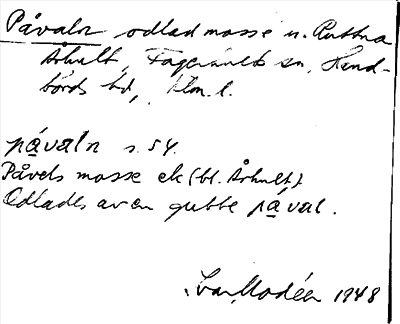 Påvaln odlad mosse u. Ruttna
Århult, Fagerhults sn, Hand-
börds hd, Klm. l.
påvaln s. 54.
Påvels mosse ek (bl. Århult).
Odlades av en gubbe påval.
Ivar Modéer 1948